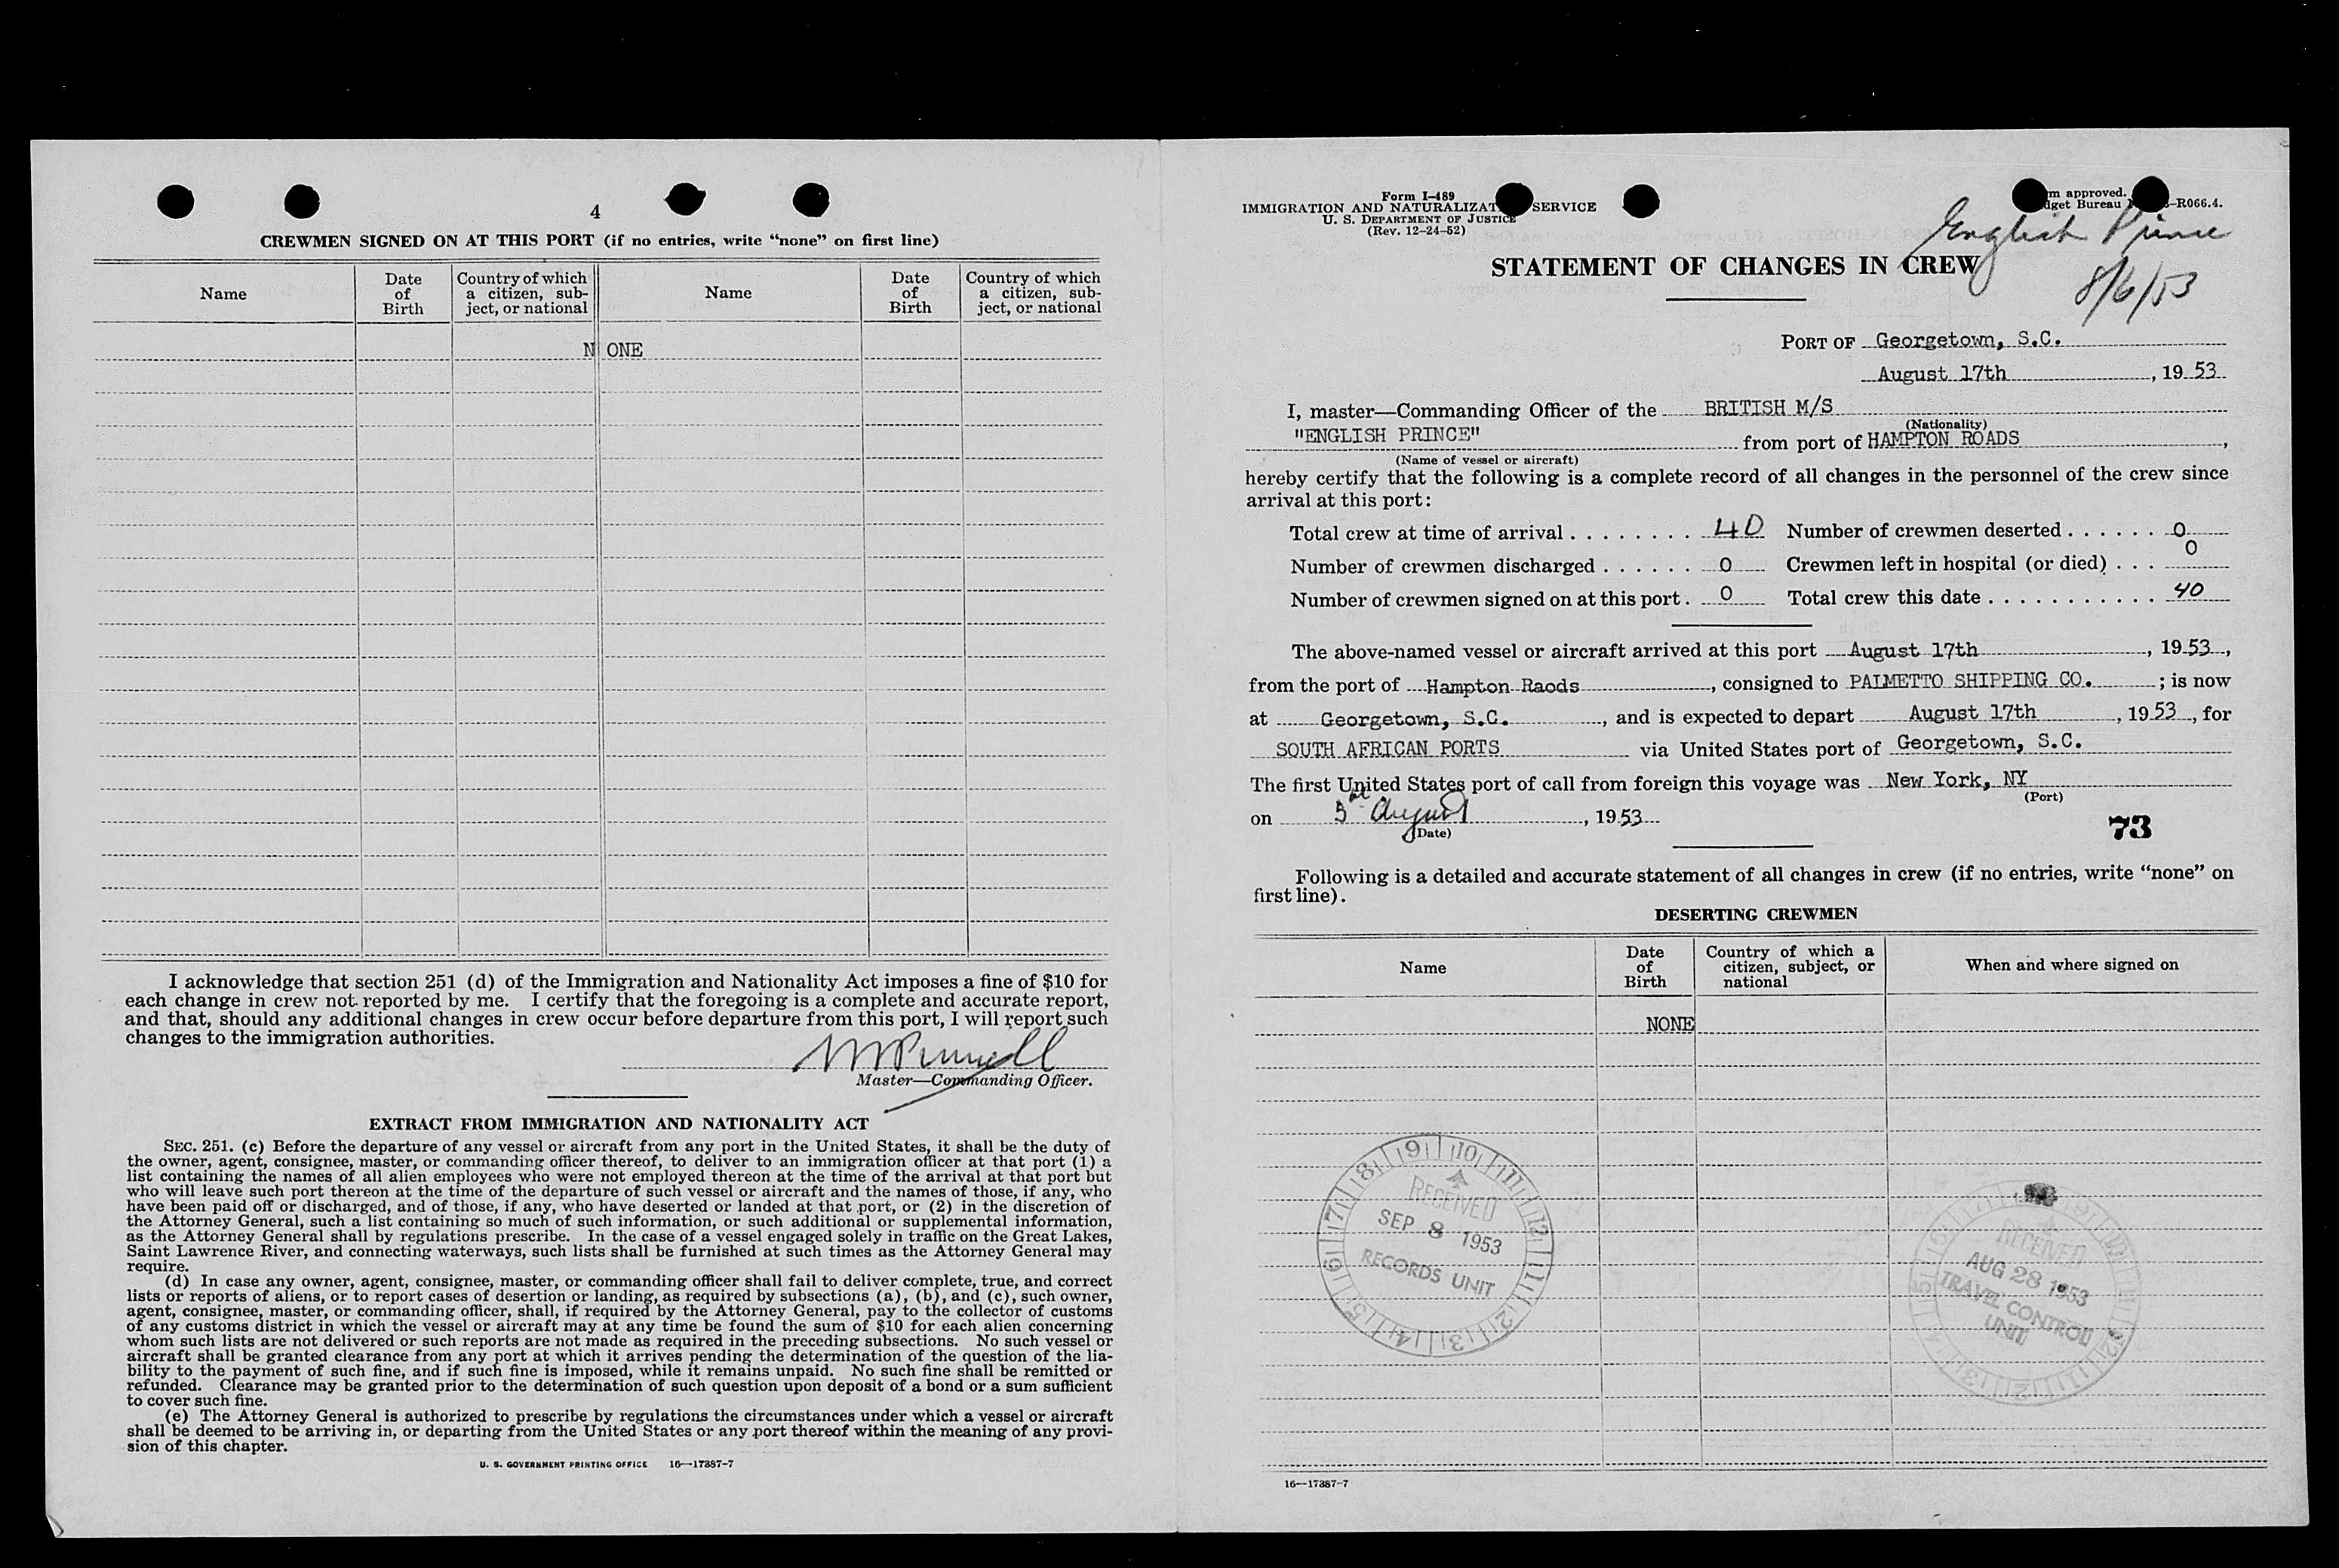 4
CREWMEN SIGNED ON AT THIS PORT (if no entries, write “none” on first line)
Name
Date of Birth
Country of which a citizen, subject, or national
Name
Date of Birth
Country of which a citizen, subject, or national
NONE
I acknowledge that section 251 (d) of the Immigration and Nationality Act imposes a fine of $10 for
each change in crew not reported by me. I certify that the foregoing is a complete and accurate report,
and that, should any additional changes in crew occur before departure from this port, I will report such
changes to the immigration authorities.
Master—Commanding Officer.
EXTRACT FROM IMMIGRATION AND NATIONALITY ACT
SEC. 251. (c) Before the departure of any vessel or aircraft from any port in the United States, it shall be the duty of
the owner, agent, consignee, master, or commanding officer thereof, to deliver to an immigration officer at that port (1) a
list containing the names of all alien employees who were not employed thereon at the time of the arrival at that port but
who will leave such port thereon at the time of the departure of such vessel or aircraft and the names of those, if any, who
have been paid off or discharged, and of those, if any, who have deserted or landed at that port, or (2) in the discretion of
the Attorney General, such a list containing so much of such information, or such additional or supplemental information,
as the Attorney General shall by regulations prescribe. In the case of a vessel engaged solely in traffic on the Great Lakes,
Saint Lawrence River, and connecting waterways, such lists shall be furnished at such times as the Attorney General may
require.
(d) In case any owner, agent, consignee, master, or commanding officer shall fail to deliver complete, true, and correct
lists or reports of aliens, or to report cases of desertion or landing, as required by subsections (a), (b), and (c), such owner,
agent, consignee, master, or commanding officer, shall, if required by the Attorney General, pay to the collector of customs
of any customs district in which the vessel or aircraft may at any time be found the sum of $10 for each alien concerning
whom such lists are not delivered or such reports are not made as required in the preceding subsections. No such vessel or
aircraft shall be granted clearance from any port at which it arrives pending the determination of the question of the lia-
bility to the payment of such fine, and if such fine is imposed, while it remains unpaid. No such fine shall be remitted or
refunded. Clearance may be granted prior to the determination of such question upon deposit of a bond or a sum sufficient
to cover such fine.
(e) The Attorney General is authorized to prescribe by regulations the circumstances under which a vessel or aircraft
shall be deemed to be arriving in, or departing from the United States or any port thereof within the meaning of any provi-
sion of this chapter.
U. S. GOVERNMENT PRINTING OFFICE 16—17387-7
Form I-489
IMMIGRATION AND NATURALIZAT SERVICE
U. S. DEPARTMENT OF JUSTICE
(Rev. 12-24-52)
m approved.
dget Bureau -R066.4.
English Prince
8/6/53
STATEMENT OF CHANGES IN CREW
PORT OF Georgetown, S.C.
August 17th, 19 53
I, master—Commanding Officer of the BRITISH M/S
(Nationality)
"ENGLISH PRINCE" from port of HAMPTON ROADS,
(Name of vessel or aircraft)
hereby certify that the following is a complete record of all changes in the personnel of the crew since
arrival at this port:
Total crew at time of arrival . . . . . . . . 40 Number of crewmen deserted . . . . . . 0
Number of crewmen discharged . . . . . . 0 Crewmen left in hospital (or died) . . . 0
Number of crewmen signed on at this port . 0 Total crew this date . . . . . . . . . . . 40
The above-named vessel or aircraft arrived at this port August 17th, 19 53,
from the port of Hampton Raods, consigned to PALMETTO SHIPPING CO. ; is now
at Georgetown, S.C., and is expected to depart August 17th, 19 53, for
SOUTH AFRICAN PORTS via United States port of Georgetown, S.C.
The first United States port of call from foreign this voyage was New York, NY
(Port)
on August, 19 53
(Date)
73
Following is a detailed and accurate statement of all changes in crew (if no entries, write “none” on
first line).
DESERTING CREWMEN
Name
Date of Birth
Country of which a citizen, subject, or national
When and where signed on
NONE
RECEIVED
SEP 8 1953
RECORDS UNIT
RECEIVED
AUG 28 1953
TRAVEL CONTROL
UNIT
16—17387-7